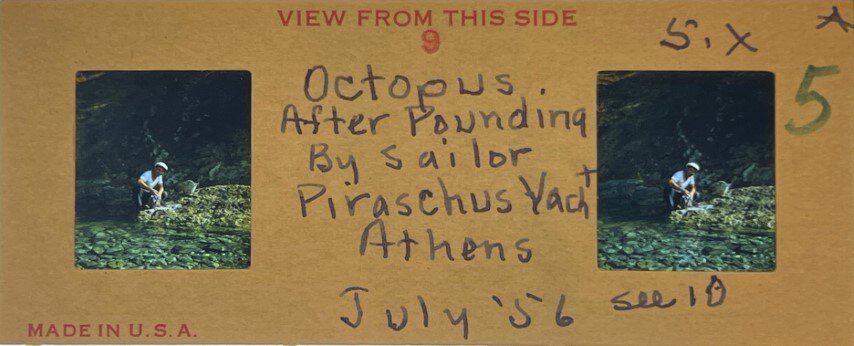 VIEW FROM THIS SIDE
9
S.X
A
5
Octopus.
After Pounding
By Sailor
Piraschus Yacht
Athens
July '56
see 10
MADE IN U.S.A.